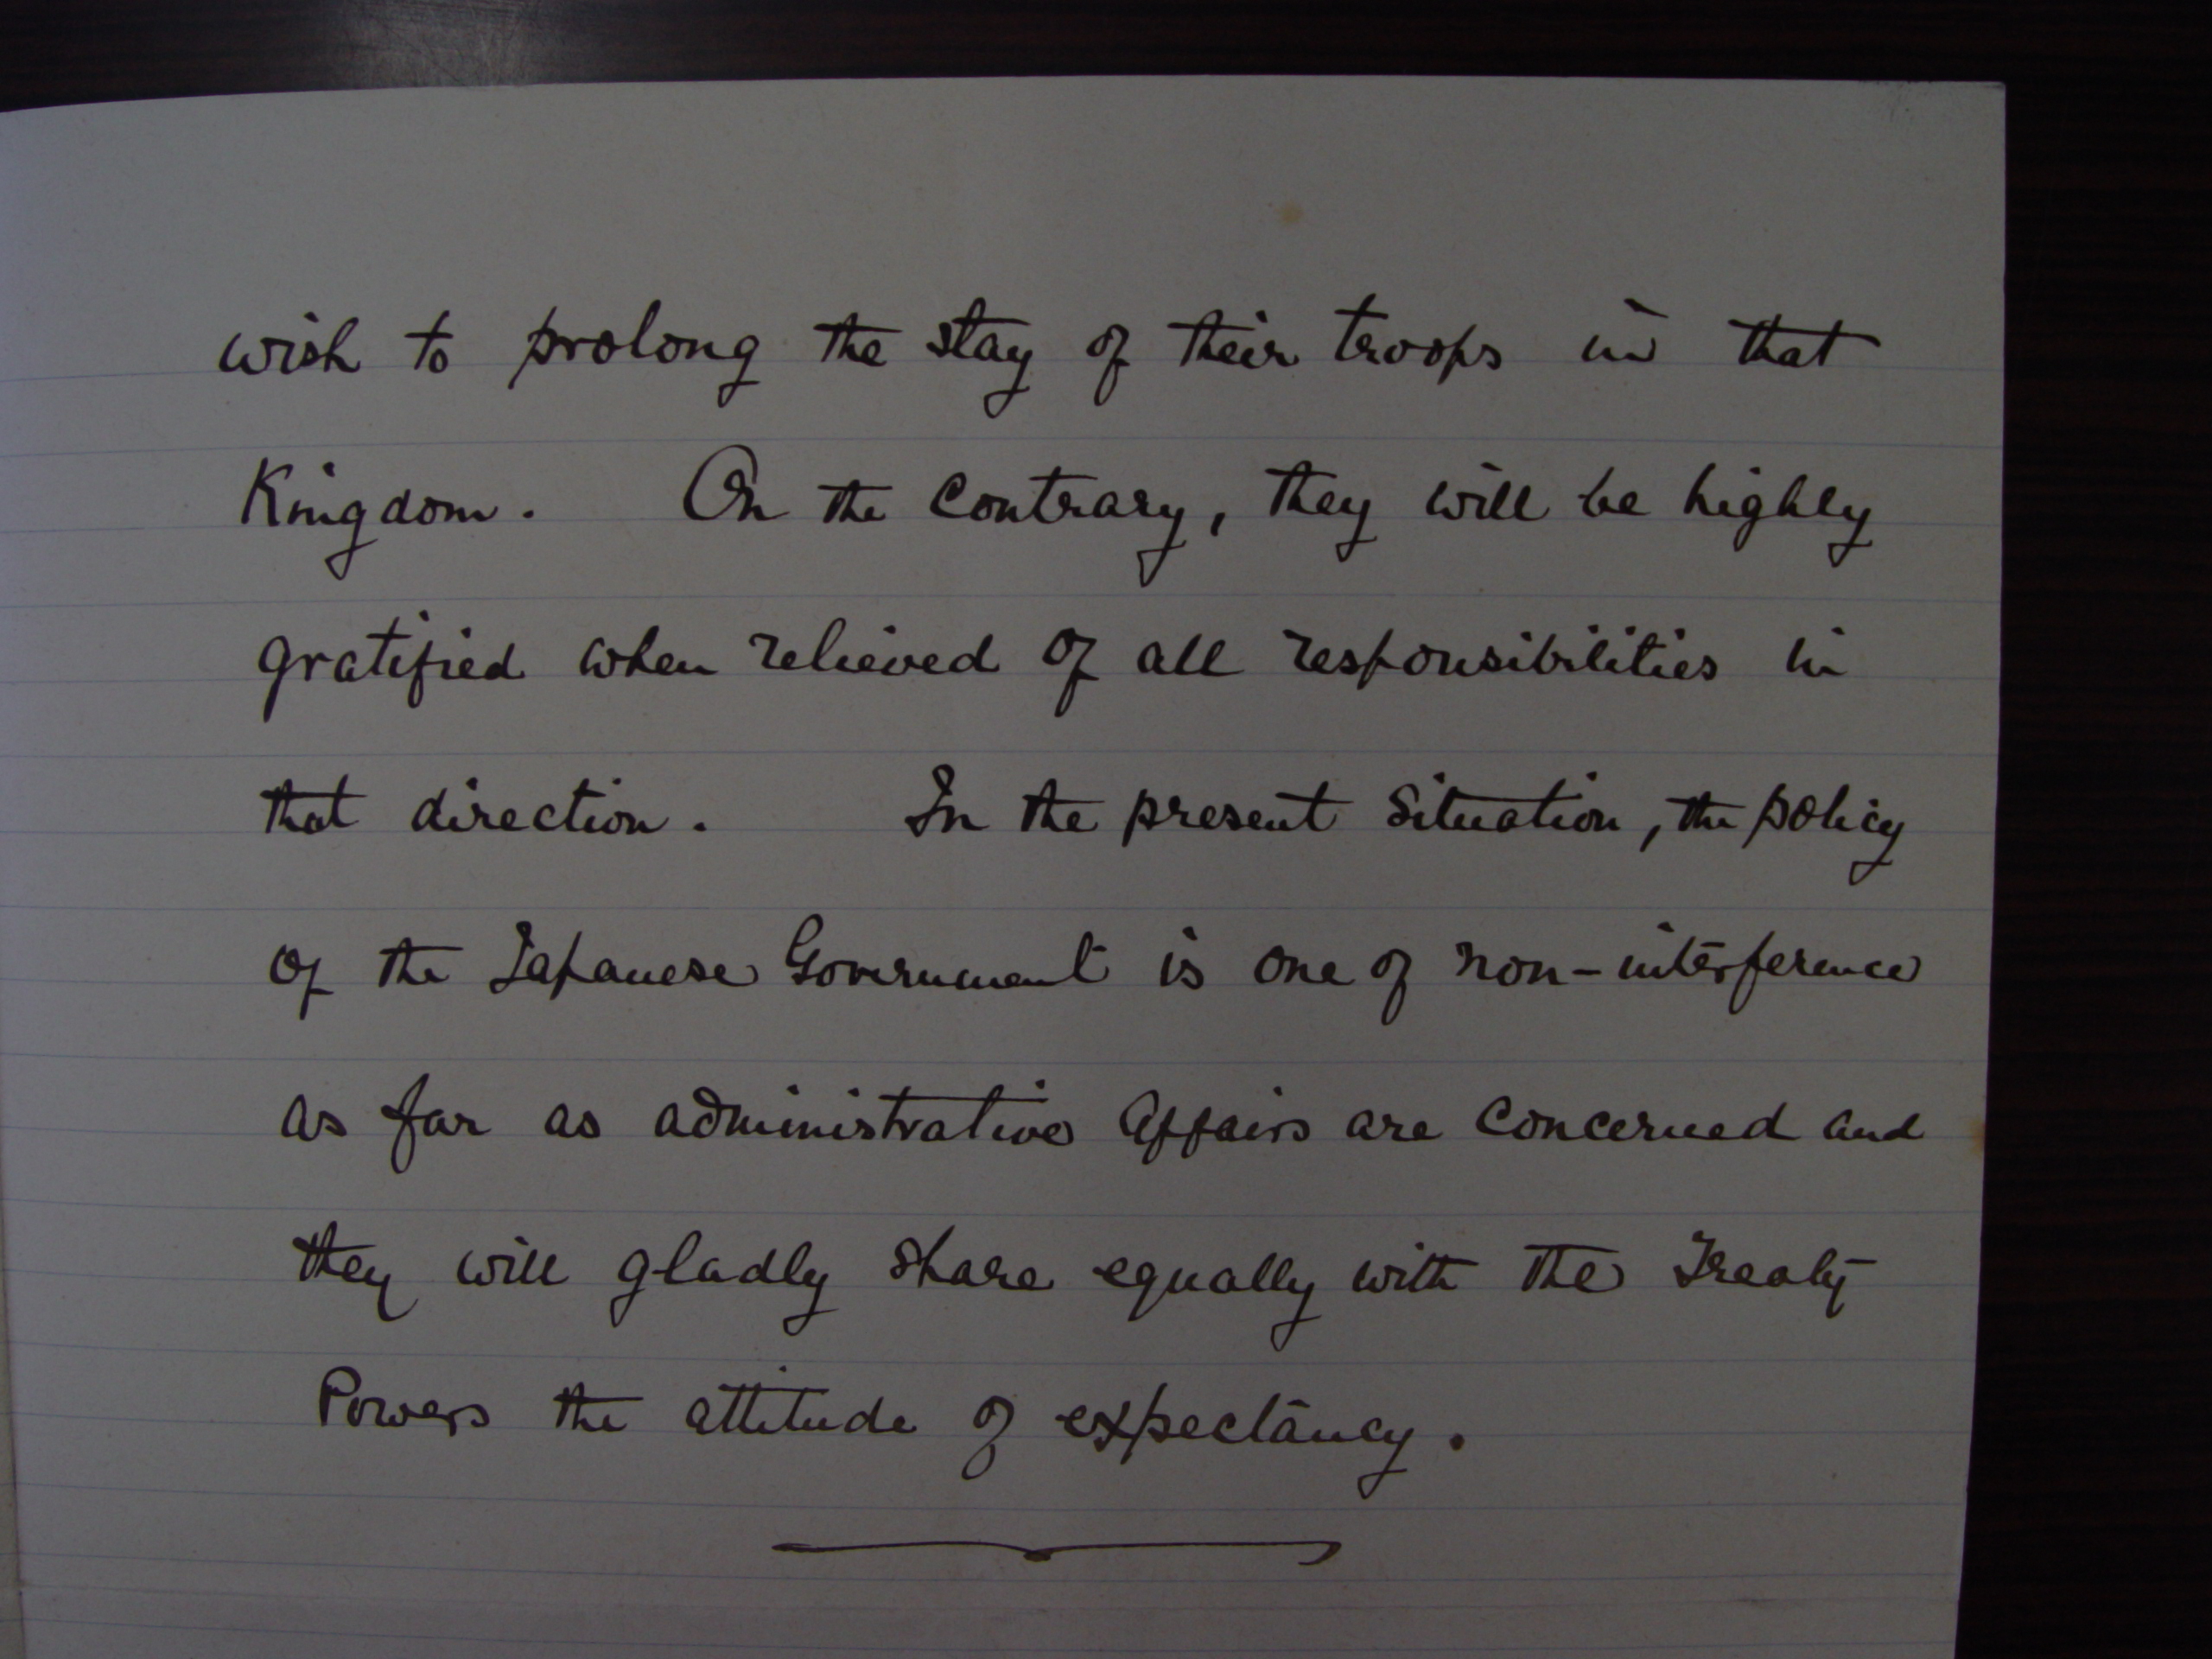 wish to prolong the stay of their troops in that
Kingdom. On the contrary, they will be highly
gratified when relieved of all responsibilities in
that direction. In the present situation, the policy
of the Japanese Government is one of non-interference
as far as administrative affairs are concerned and
they will gladly share equally with the Treaty
Powers the attitude of expectancy.